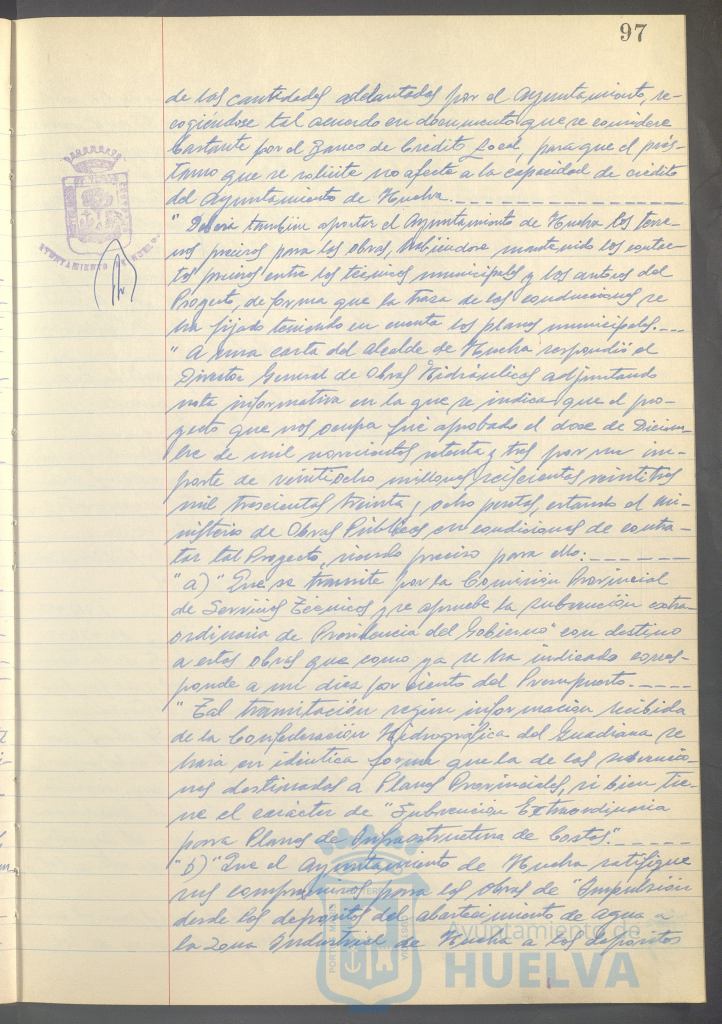 97
de las cantidades adelantadas por el Ayuntamiento, re-
cogiéndose tal acuerdo en documento que se considere
bastante por el Banco de Crédito Local, para que el prés-
tamo que se solicite no afecte a la capacidad de crédito
del Ayuntamiento de Huelva.
" Deberá también aportar el Ayuntamiento de Huelva los terre-
nos precisos para las obras, habiéndose mantenido los contac-
tos precisos entre los técnicos municipales y los autores del
Proyecto, de forma que la traza de las conducciones se
ha fijado teniendo en cuenta los planos municipales.
" A una carta del Alcalde de Huelva respondió el
Director General de Obras Hidráulicas adjuntando
nota informativa en la que se indica que el pro-
yecto que nos ocupa fué aprobado el doce de Diciem-
bre de mil novecientos setenta y tres por un im-
porte de veintiocho millones seiscientas veintitres
mil trescientas treinta y ocho pesetas, estando el Mi-
nisterio de Obras Públicas en condiciones de contra-
tar tal Proyecto, siendo preciso para ello:
"a)" Que se tramite por la Comisión Provincial
de Servicios Técnicos y se apruebe la subvención extra-
ordinaria de Presidencia del Gobierno" con destino
a estas obras que como ya se ha indicado corres-
ponde a un diez por ciento del Presupuesto.
" Tal tramitación según información recibida
de la Confederación Hidrográfica del Guadiana se
hará en idéntica forma que la de las subvencio-
nes destinadas a Planes Provinciales, si bien tie-
ne el carácter de "Subvención Extraordinaria
para Planes de Infraestructura de Costas".
"b)" Que el Ayuntamiento de Huelva ratifique
sus compromisos para las obras de "Impulsión
desde los depósitos del abastecimiento de agua a
la Zona Industrial de Huelva a los depósitos
AYUNTAMIENTO DE HUELVA
Ayuntamiento de
HUELVA